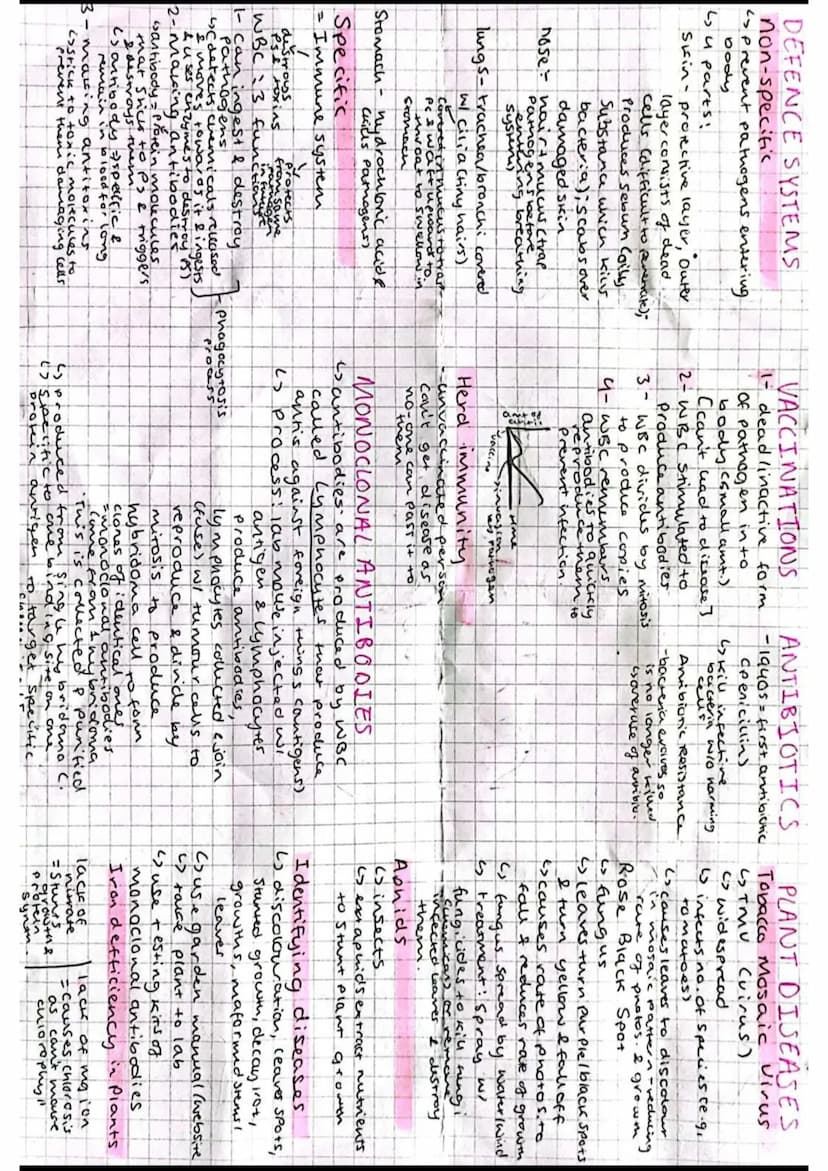 DEFENCE SYSTEMS
non-specific
↳ prevent pathogens entering
body
↳ 4 parts:
skin - protective layer, outer
layer consists of dead
cells (difficult to penetrate);
produces sebum (oily
substance which kills
bacteria); scabs over
damaged skin
nose = hair + mucus (trap
pathogens before
entering breathing
system)
lungs - trachea/bronchi covered
w/ cilia (tiny hairs)
covered in mucus to trap
throat to swallow in
stomach
Stomach - hydrochloric acid
(acids pathogens)
Specific
= Immune system
destroys
Ps & toxins
protects
from same
WBC : 3 functions
1- can ingest & destroy
pathogens
↳ (detects chemicals released
& moves towards it & ingests
& uses enzymes to destroy Ps)
phagocytosis
process
2- making antibodies
↳ antibody = protein molecules
that stick to Ps & triggers
& destroys them
↳ antibody → specific &
remain in blood for long
3 - making antitoxins
↳ stick to toxic molecules to
prevent them damaging cells
VACCINATIONS
1- dead/inactive form
of pathogen into
body (small amt.)
[can't lead to disease]
2- WBC stimulated to
produce antibodies
3 - WBC divides by mitosis
to produce copies
4- WBC remembers
antibodies to quickly
reproduce them to
prevent infection
time
vaccine
Herd immunity
- unvaccinated person
can't get disease as
no-one can pass it to
them
MONOCLONAL ANTIBODIES
↳ antibodies are produced by WBC
called lymphocytes that produce
antis against foreign things (antigens)
↳ process: lab mouse injected w/
antigen & lymphocytes
produce antibodies,
lymphocytes collected & join
(fuse) w/ tumour cells to
reproduce & divide by
mitosis to produce
hybridoma cell to form
clones of identical ones
= monoclonal antibodies
(come from 1 hybridoma
. This is collected & purified
↳ produced from single hybridoma c.
↳ specific to one binding site on one
protein antigen to target specific
ANTIBIOTICS
- 1940s = first antibiotic
(penicillin)
↳ kill infective
bacteria w/o harming
cells
Antibiotic resistance
- bacteria evolves so
is no longer killed
↳ overuse of antibio.
PLANT DISEASES
Tobacco Mosaic Virus
↳ TMV (virus)
↳ widespread
↳ infects no. of species (e.g,
tomatoes)
↳ causes leaves to discolour
in mosaic pattern - reducing
rate of photos. & growth
Rose Black Spot
↳ fungus
↳ leaves turn purple/black spots
& turn yellow & fall off
↳ causes rate of photos. to
fall & reduces rate of growth
↳ fungus spread by water/wind
↳ treatment: spray w/
fungicides to kill fungi
(chemicals) or remove
infected leaves & destroy
them.
Aphids
↳ insects
↳ extract nutrients
to stunt plant growth
Identifying diseases
↳ discolouration, leaves spots,
stunted growth, decay/rot,
growths, malformed stems/
leaves
↳ use garden manual/website
↳ take plant to lab
↳ use testing kits of
monoclonal antibodies
Iron defficiency in plants
lack of
nitrate
= stunts
growth &
protein
synth.
lack of mg ion
= causes chlorosis
as can't make
chlorophyll